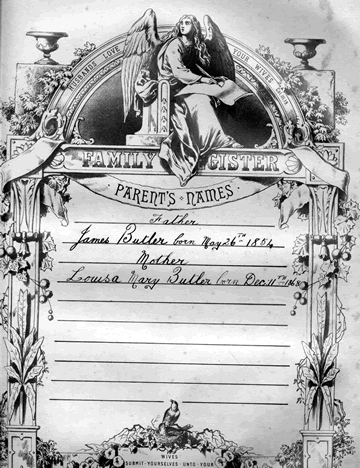 HUSBANDS LOVE YOUR WIVES
FAMILY GISTER
PARENT'S NAMES
Father
James Butler born May 26TH 1854
Mother
Louisa Mary Butler born Dec. 11TH
WIVES
SUBMIT YOURSELVES UNTO YOUR